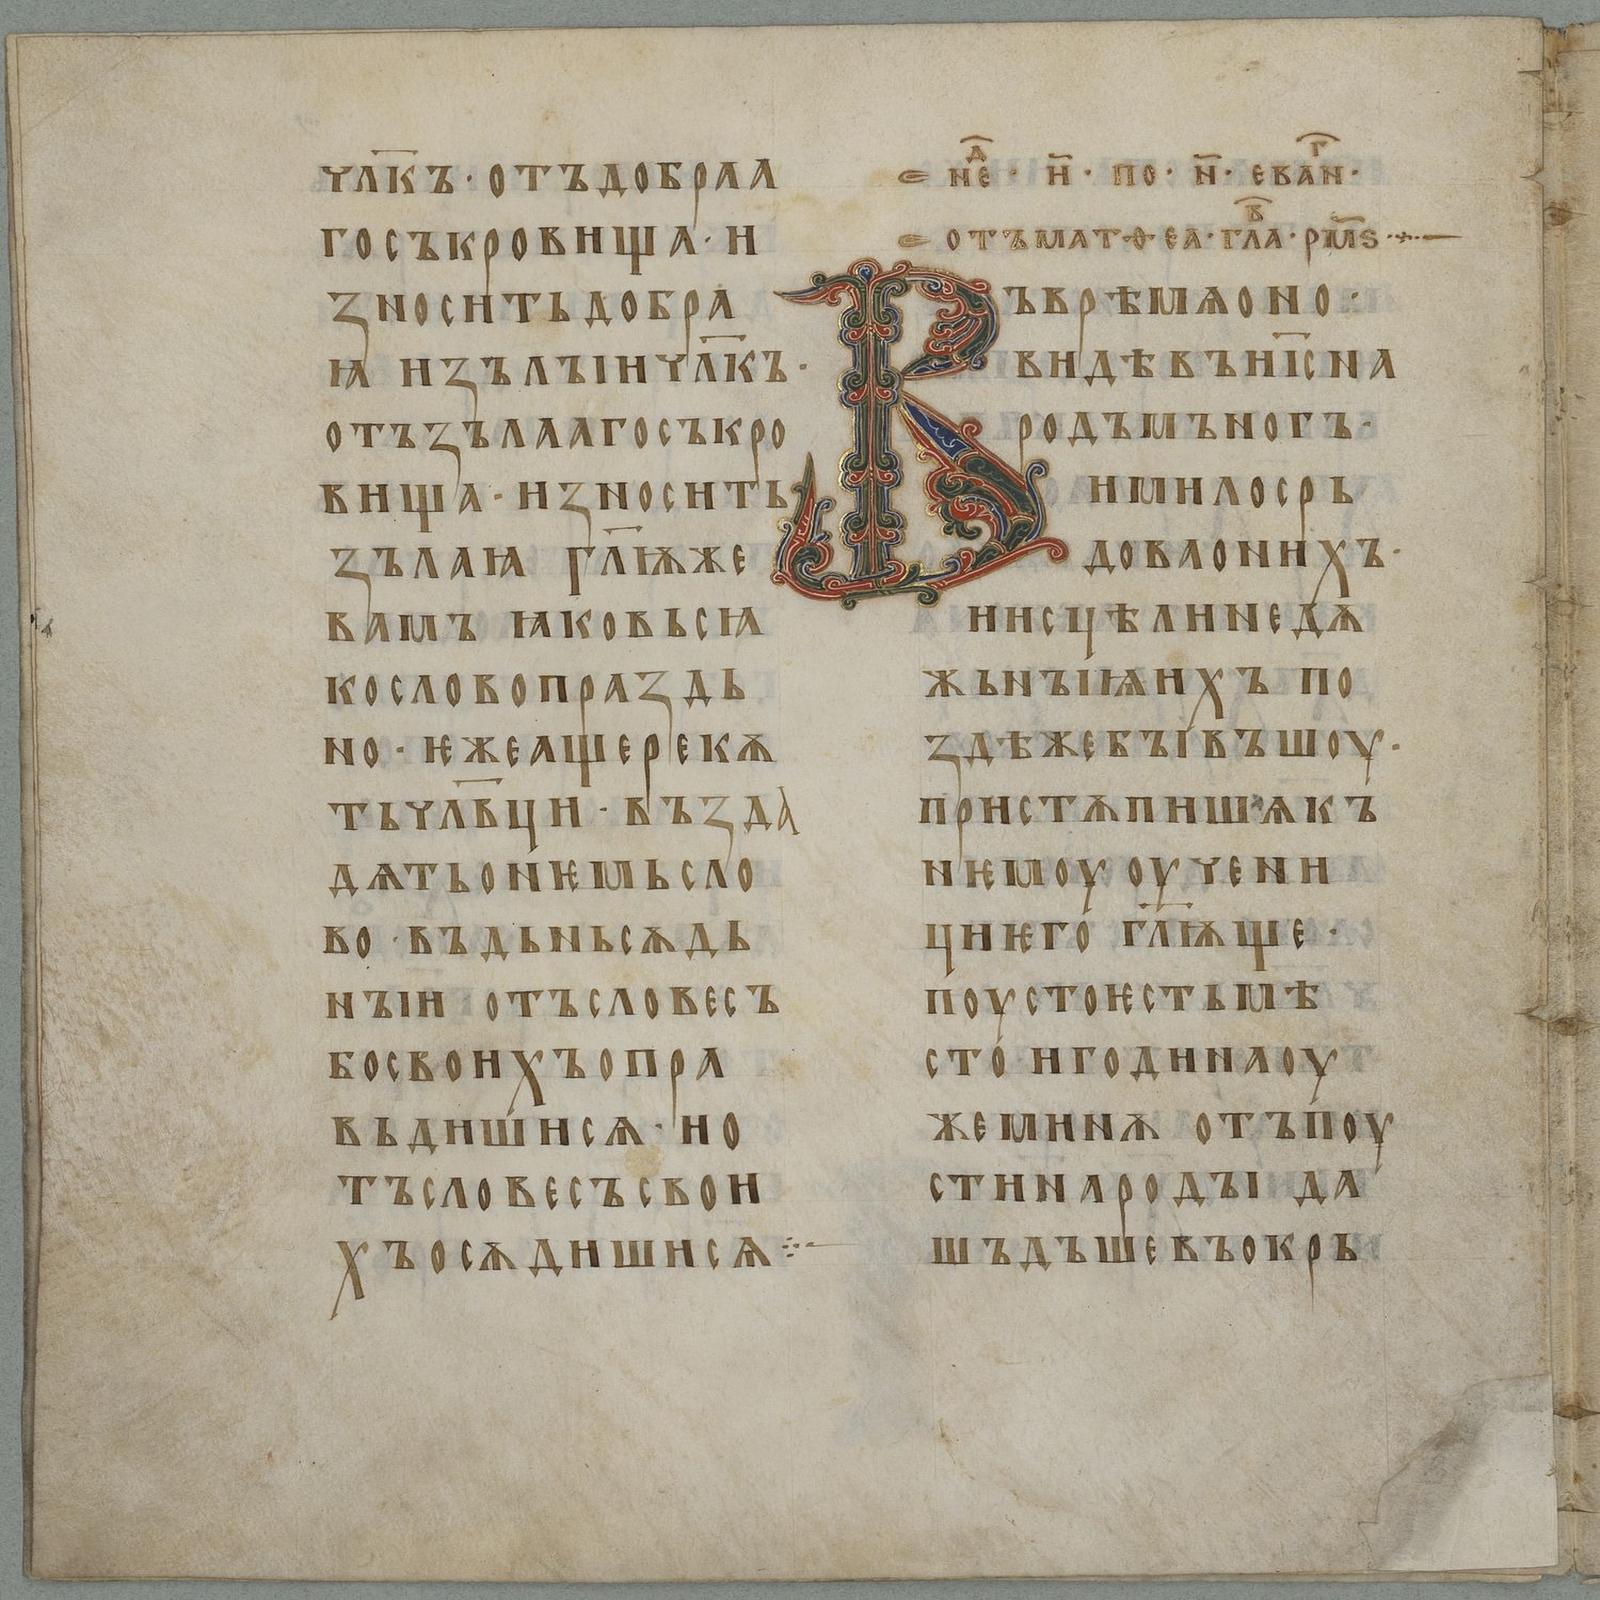 чл҃къ · отъдобраа
госъкровища · и
ꙁноситьдобра
ꙗ иꙁълъıичл҃къ ·
отъꙁълаагосъкро
вища · иꙁносить
ꙁълаꙗ гл҃ѭже
вамъ ꙗковьсꙗ
кословопраꙁдь
но · ѥжеащерекѫ
тьчл҃вци · въꙁда
дѧтьонѥмьсло
во · въдьньсѫдь
нъıи отъсловесъ
босвоихъопра
вьдишисѧ · но
тъсловесъсвои
хъосѫдишисѧ
нед҃ · н҃ · по · н҃ · еваг҃н ·
отъматѳеа · глв҃а · рм҃ѕ
Въврѣмѧоно ·
видѣвъиі҃сна
родъмъногъ ·
имилосрь
доваонихъ ·
иисцѣлинедѫ
жьнъıѩихъ по
ꙁдѣжебъıвъшоу ·
пристѫпишѧкъ
нѥмоу оучени
циѥго гл҃ѭще ·
поустоѥстьмѣ
сто игодинаоу
жеминѫ отъпоу
стинародъı да
шъдъшевъокрь